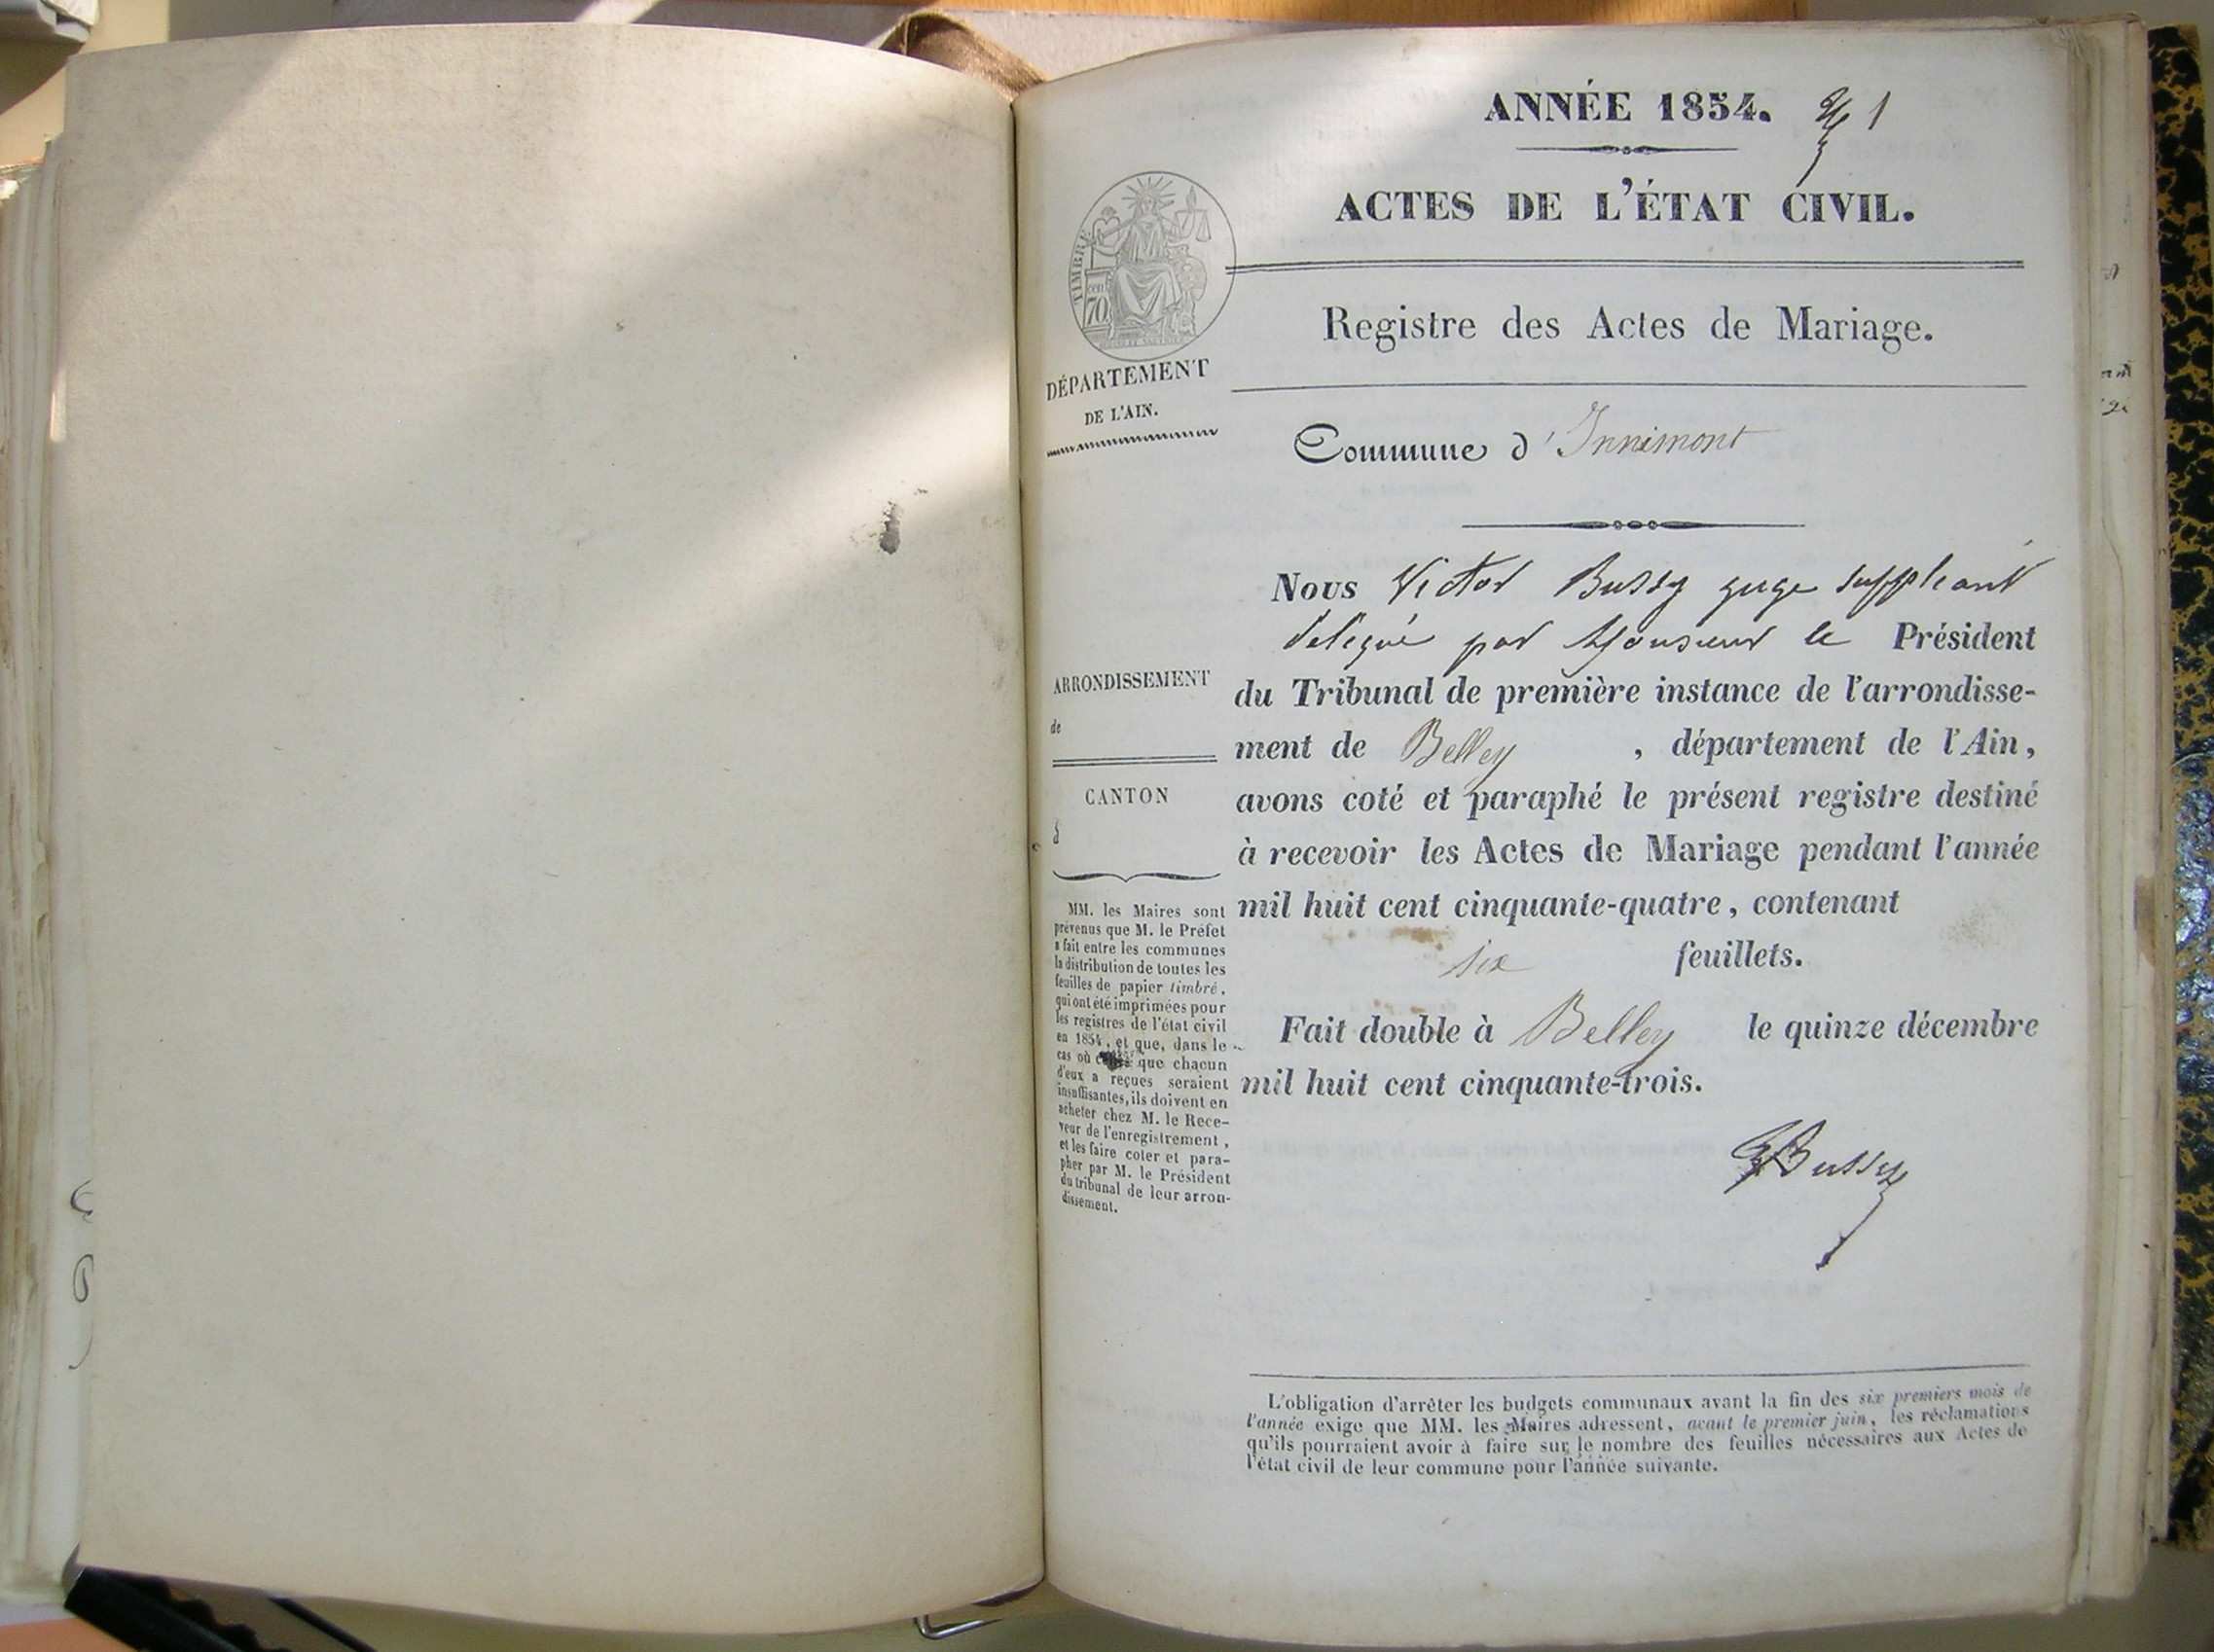 ANNÉE 1854. 1
ACTES DE L'ÉTAT CIVIL.
TIMBRE
cen
70
Registre des Actes de Mariage.
DÉPARTEMENT
DE L'AIN.
Commune d'Innimont
Nous Victor Bussy juge suppleant
délégué par Monsieur le Président
du Tribunal de première instance de l'arrondisse-
ment de Belley , département de l'Ain,
avons coté et paraphé le présent registre destiné
à recevoir les Actes de Mariage pendant l'année
mil huit cent cinquante-quatre, contenant
six feuillets.
Fait double à Belley le quinze décembre
mil huit cent cinquante-trois.
Bussy
ARRONDISSEMENT
de
CANTON
d
MM. les Maires sont
prévenus que M. le Préfet
a fait entre les communes
la distribution de toutes les
feuilles de papier timbré,
qui ont été imprimées pour
les registres de l'état civil
en 1854, et que, dans le
cas où que chacun
d'eux a reçues seraient
insuffisantes, ils doivent en
acheter chez M. le Rece-
veur de l'enregistrement,
et les faire coter et para-
pher par M. le Président
du tribunal de leur arron-
dissement.
L'obligation d'arrêter les budgets communaux avant la fin des six premiers mois de
l'année exige que MM. les Maires adressent, avant le premier juin, les réclamations
qu'ils pourraient avoir à faire sur le nombre des feuilles nécessaires aux Actes de
l'état civil de leur commune pour l'année suivante.